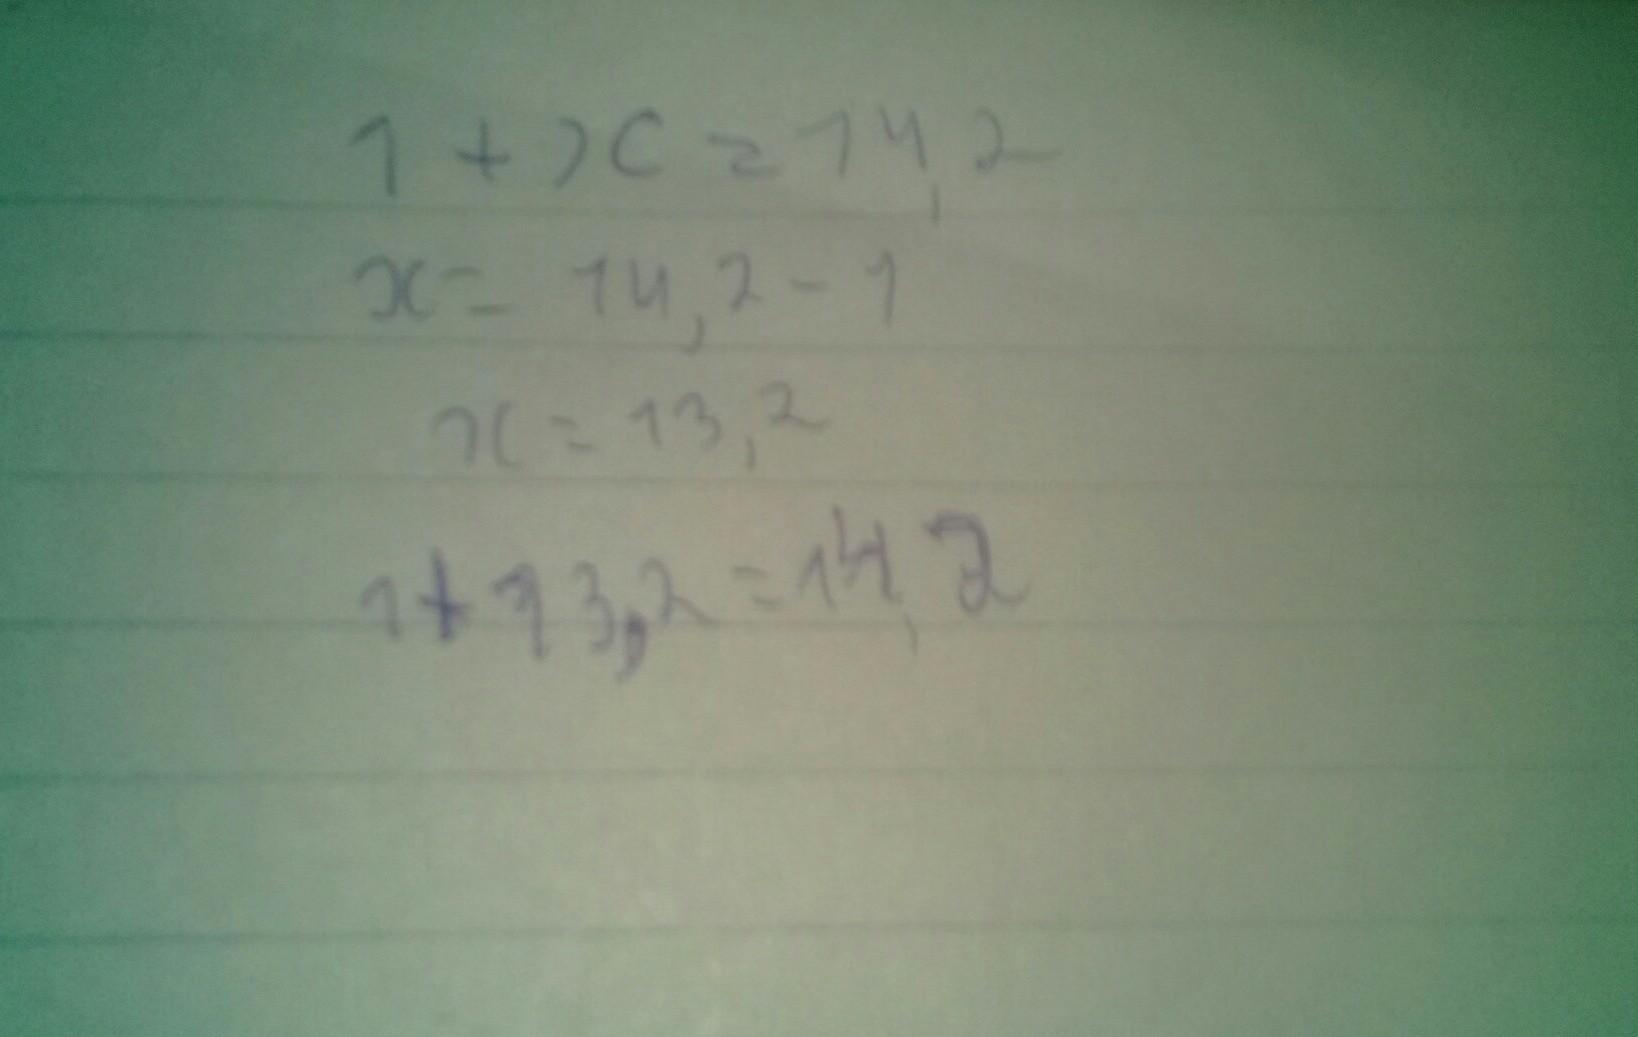 1 + x = 14,2
x = 14,2 - 1
x = 13,2
1 + 13,2 = 14,2